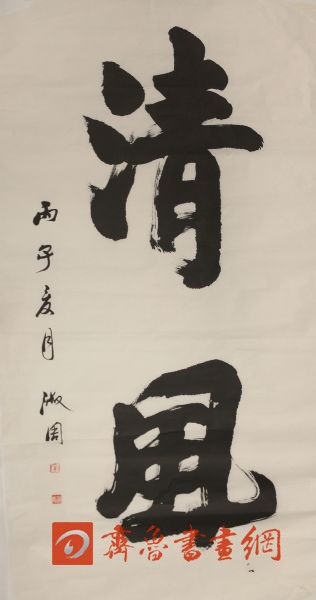 清風
丙子夏月
淑周
齊魯書畫網